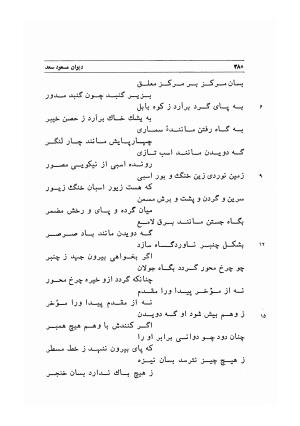 ۳۸۰ دیوان مسعود سعد
بسان مرکز بر مرکز معلق
بزیر گنبد چون گنبد مدور
۶ به پای گرد برآرد ز کوه بابل
به یشک خاک برآرد ز حصن خیبر
به گاه رفتن مانندهٔ سماری
چهارپایش مانند چار لنگر
گه دویدن مانند اسب تازی
رونده اسبی از نیکویی مصور
۹ زمین نوردی زین خنگ و بور اسبی
که هست زیور اسبان خنگ زیور
سرین و گردن و پشت و برش مسمن
میان گرده و پای و رخش مضمر
بگاه جستن مانند برق لامع
گه دویدن مانند باد صرصر
۱۲ بشکل چنبر ناوردگاه سازد
اگر بخواهی بیرون جهد ز چنبر
چو چرخ محور گردد بگاه جولان
چنانکه گردد ازو خیره چرخ محور
نه از مؤخر پیدا ورا مقدم
نه از مقدم پیدا ورا مؤخر
۱۵ ز وهم بیش شود او گه دویدن
اگر کنندش با وهم هیچ همبر
چنان دود چو دوانی برابر او را
که پای بیرون ننهد ز خط مسطر
ز هیچ چیز نترسد بسان نیزه
ز هیچ باک ندارد بسان خنجر